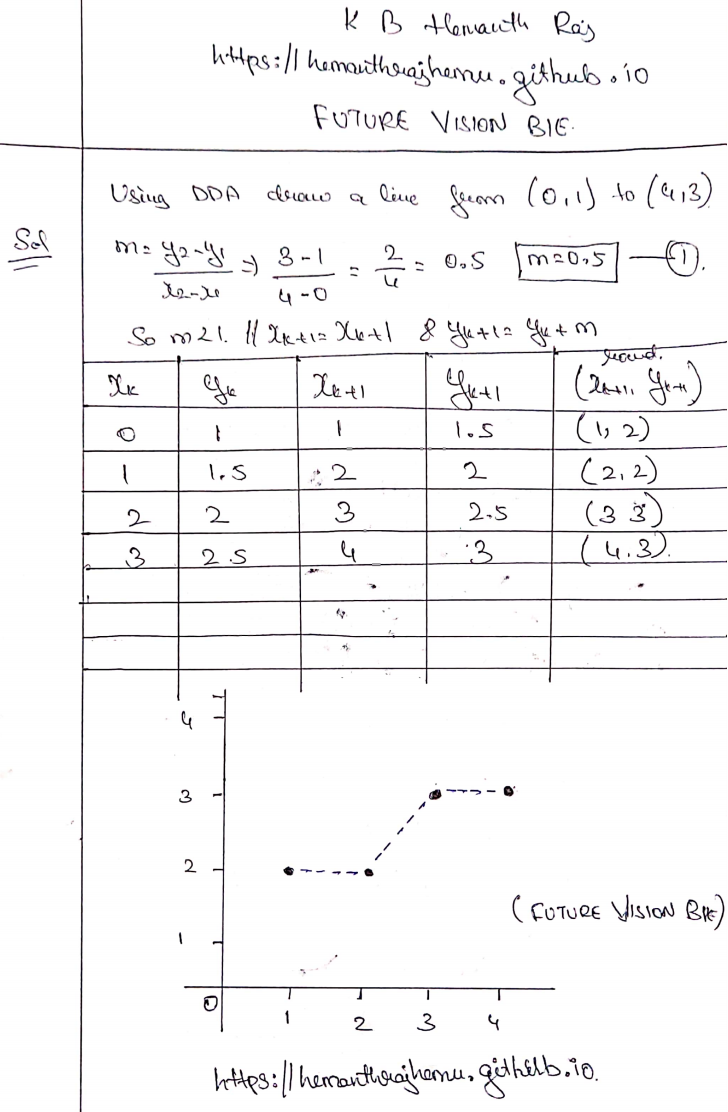 K B Hemanth Raj
https://hemanthrajhemu.github.io
FUTURE VISION BIE.
Using DDA draw a line from (0,1) to (4,3)
Sol
m= y2-y1/x2-x1 => 3-1/4-0 = 2/4 = 0.5 m=0.5 — ①.
So m<1. || xk+1= xk+1 & yk+1= yk+m
xk yk xk+1 yk+1 round. (xk+1, yk+1)
0 1 1 1.5 (1, 2)
1 1.5 2 2 (2, 2)
2 2 3 2.5 (3 3)
3 2.5 4 3 (4.3).
4
3
2
(FUTURE VISION BIE)
1
0
1 2 3 4
https://hemanthrajhemu.github.io.